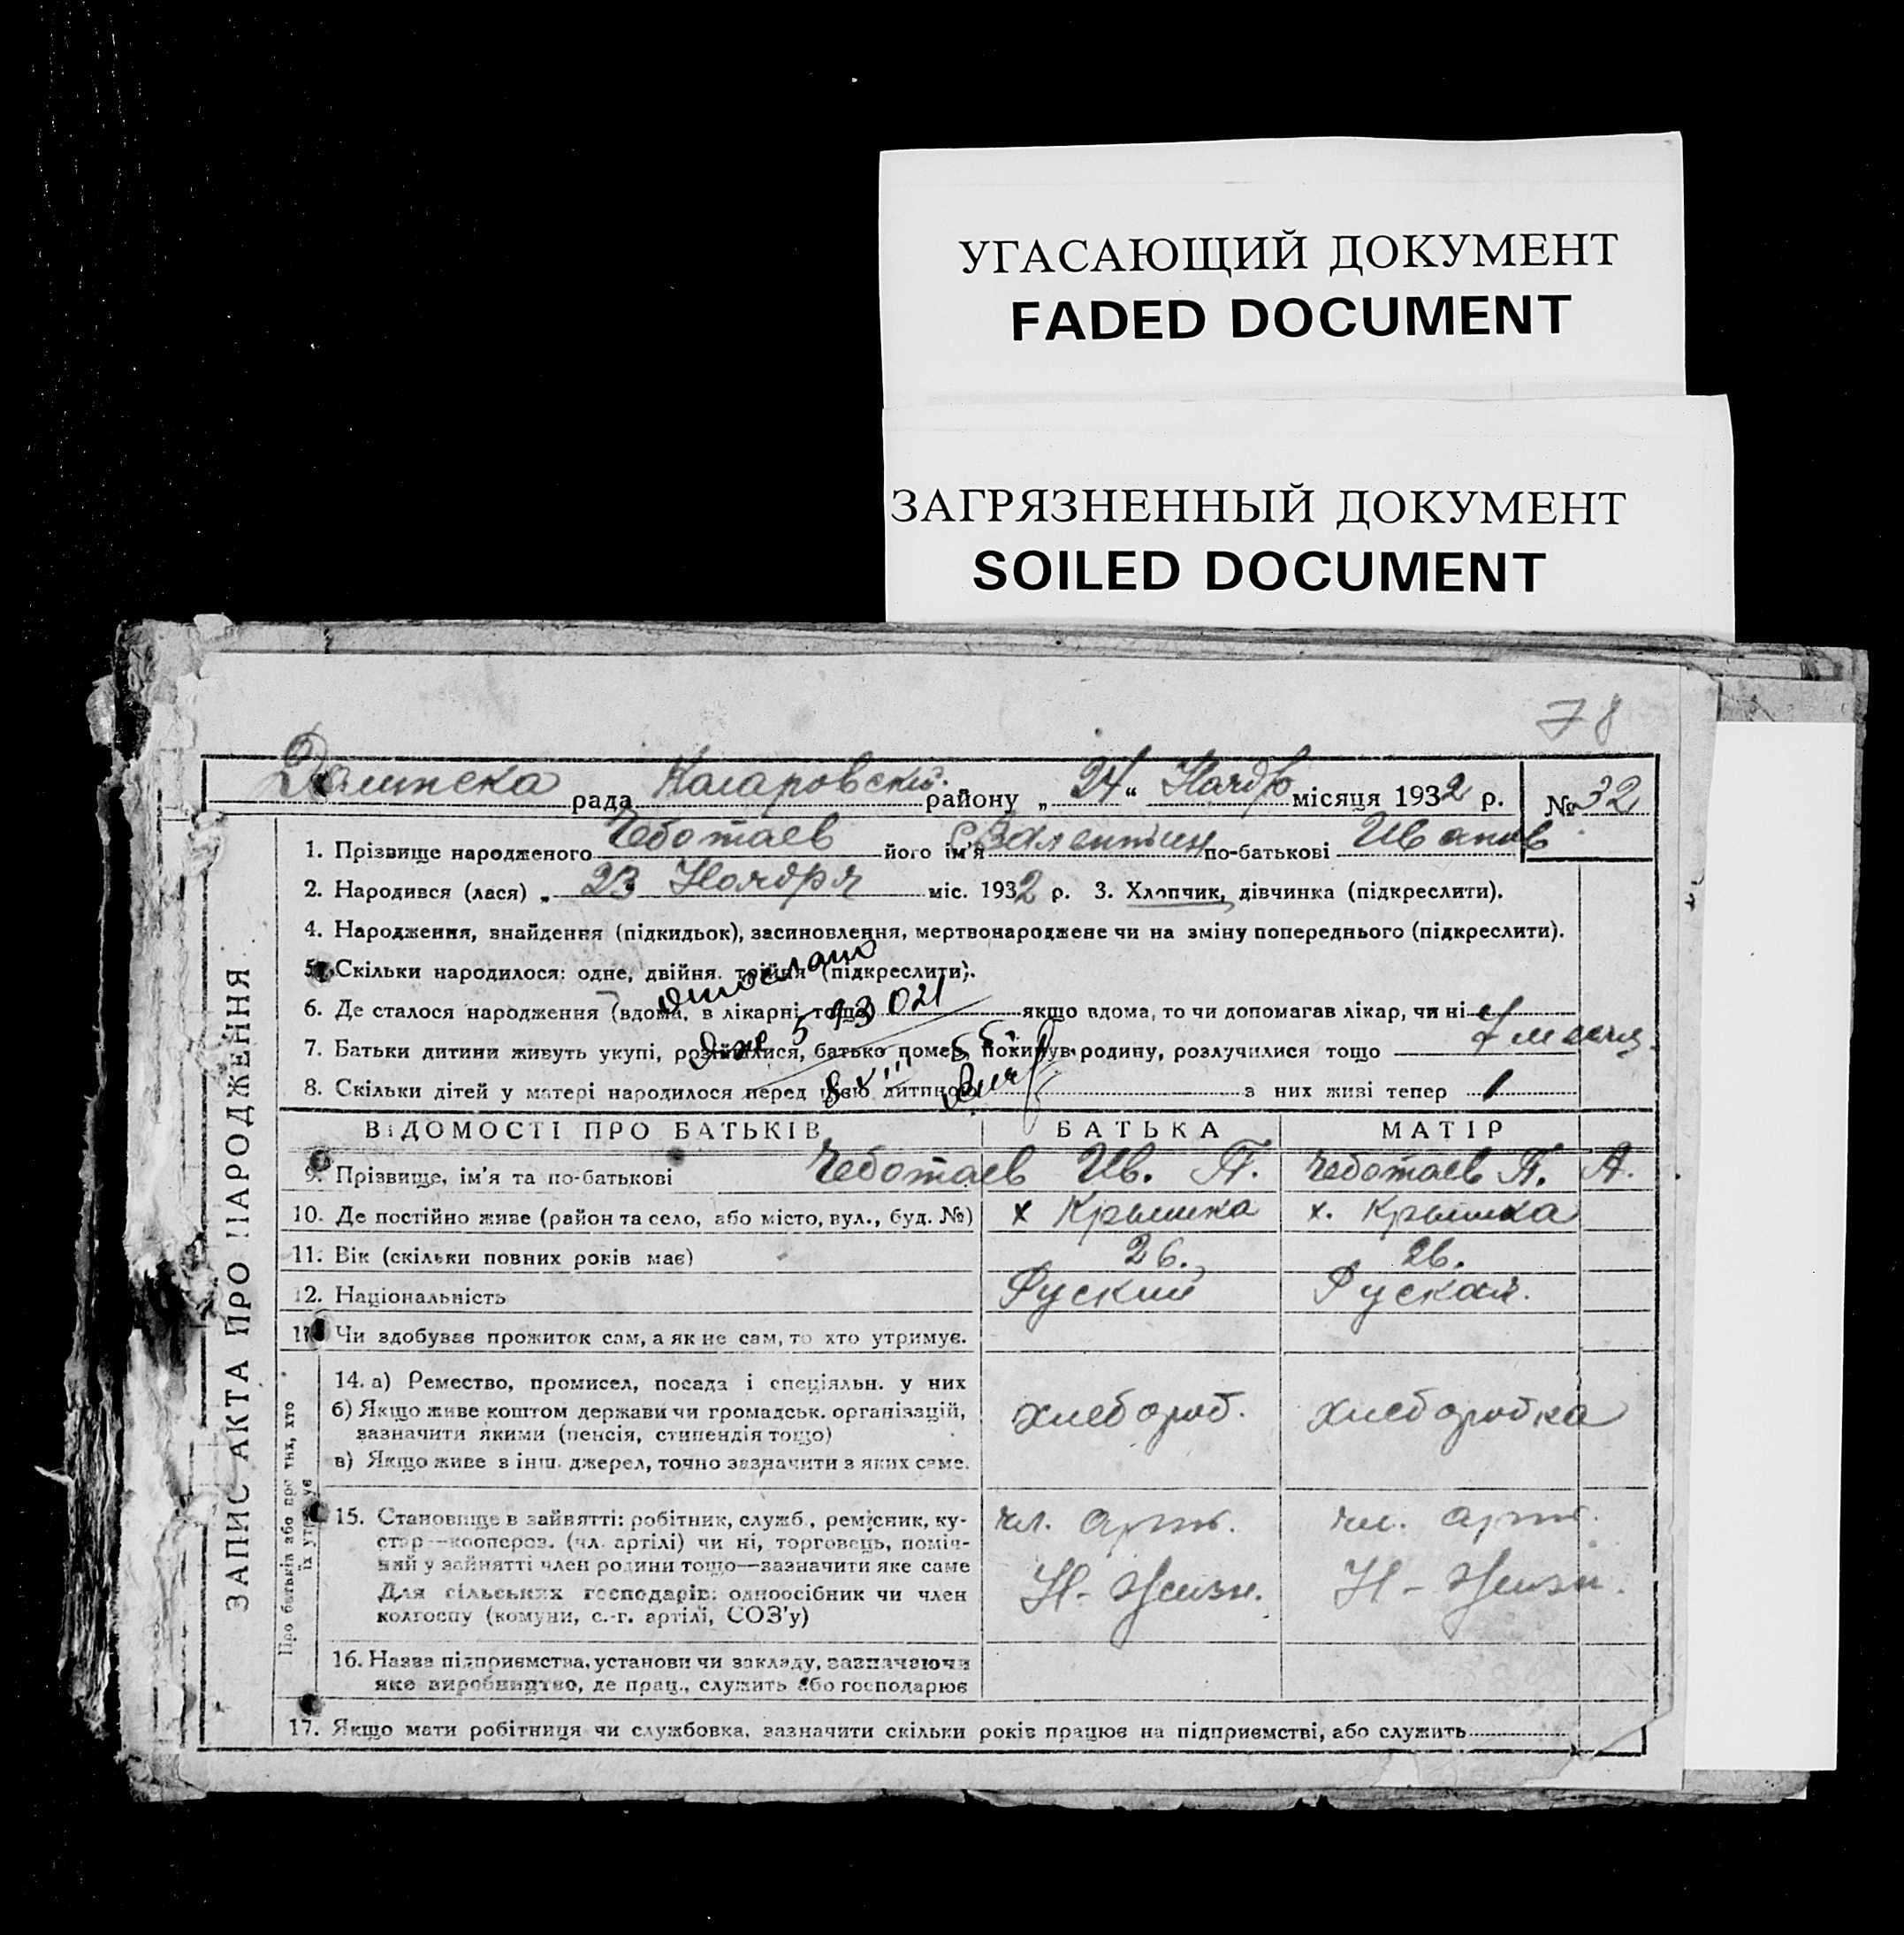 УГАСАЮЩИЙ ДОКУМЕНТ
FADED DOCUMENT
ЗАГРЯЗНЕННЫЙ ДОКУМЕНТ
SOILED DOCUMENT
78
рада района „ 24 “ Ноядр місяця 1932 р. № 32
ЗАПИС АКТА ПРО НАРОДЖЕННЯ
1. Прізвище народженого Чеботаев його ім'я Валентин по-батькові Иванов
2. Народився (лася) „ 23 Ноября міс. 1932 р. 3. Хлопчик, дівчинка (підкреслити).
4. Народження, знайдення (підкидьок), засиновлення, мертвонароджене чи на зміну попереднього (підкреслити).
5. Скільки народилося: одне, двійня, трійня (підкреслити).
отослано
6. Де сталося народження (вдома, в лікарні тощо) якщо вдома, то чи допомагав лікар, чи ні
7. Батьки дитини живуть укупі, розійшлися, батько помер, покинув родину, розлучилися тощо
8. Скільки дітей у матері народилося перед цією дитиною з них живі тепер 1
ВІДОМОСТІ ПРО БАТЬКІВ БАТЬКА МАТІР
9. Прізвище, ім'я та по-батькові Чеботаев Ив. П. Чеботаев П. А.
10. Де постійно живе (район та село, або місто, вул., буд. №) х Крышка х. Крышка
11. Вік (скільки повних років має) 26. 26.
12. Національність Руский Руская.
13. Чи здобуває прожиток сам, а як не сам, то хто утримує.
14. а) Ремество, промисел, посада і спеціяльн. у них
б) Якщо живе коштом держави чи громадськ. організацій,
зазначити якими (пенсія, стипендія тощо) хлебороб. хлеборобка
в) Якщо живе з інш. джерел, точно зазначити з яких саме.
15. Становище в зайнятті: робітник, служб., ремісник, ку-
стар—коопероз. (чл. артілі) чи ні, торговець, поміч- чл. арт. чл. арт.
ний у зайнятті член родини тощо—зазначити яке саме
Для сільських господарів: одноосібник чи член Н-Жизн. Н-Жизн.
колгоспу (комуни, с.-г. артілі, СОЗ'у)
16. Назва підприємства, установи чи закладу, зазначаючи
яке виробництво, де прац., служить або господарює
17. Якщо мати робітниця чи службовка, зазначити скільки років працює на підприємстві, або служить